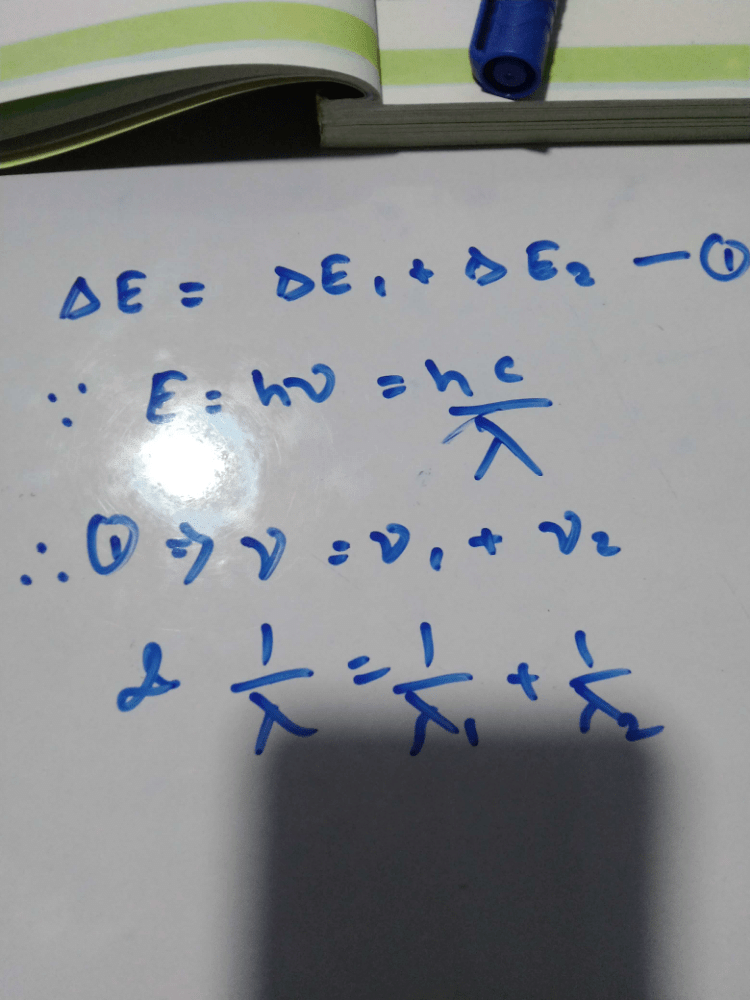 ΔE = ΔE₁ + ΔE₂ — ①
∵ E = hν = hc/λ
∴ ① ⇒ ν = ν₁ + ν₂
& 1/λ = 1/λ₁ + 1/λ₂